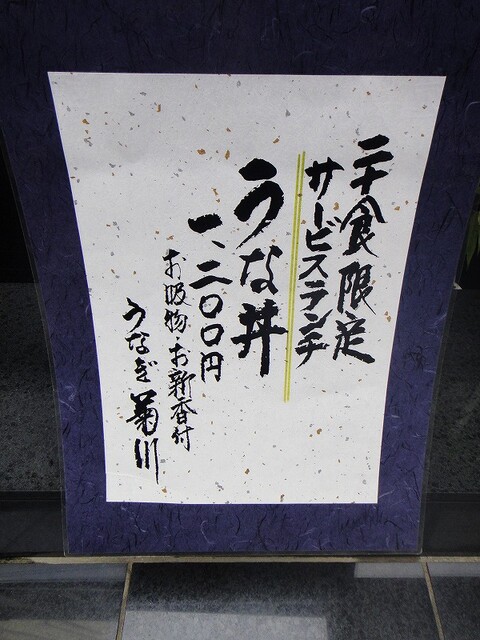 二十食限定
サービスランチ
うな丼
一、二〇〇円
お吸物・お新香付
うなぎ 菊川